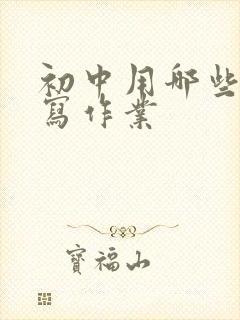 初中用哪些
寫作業
寶福山